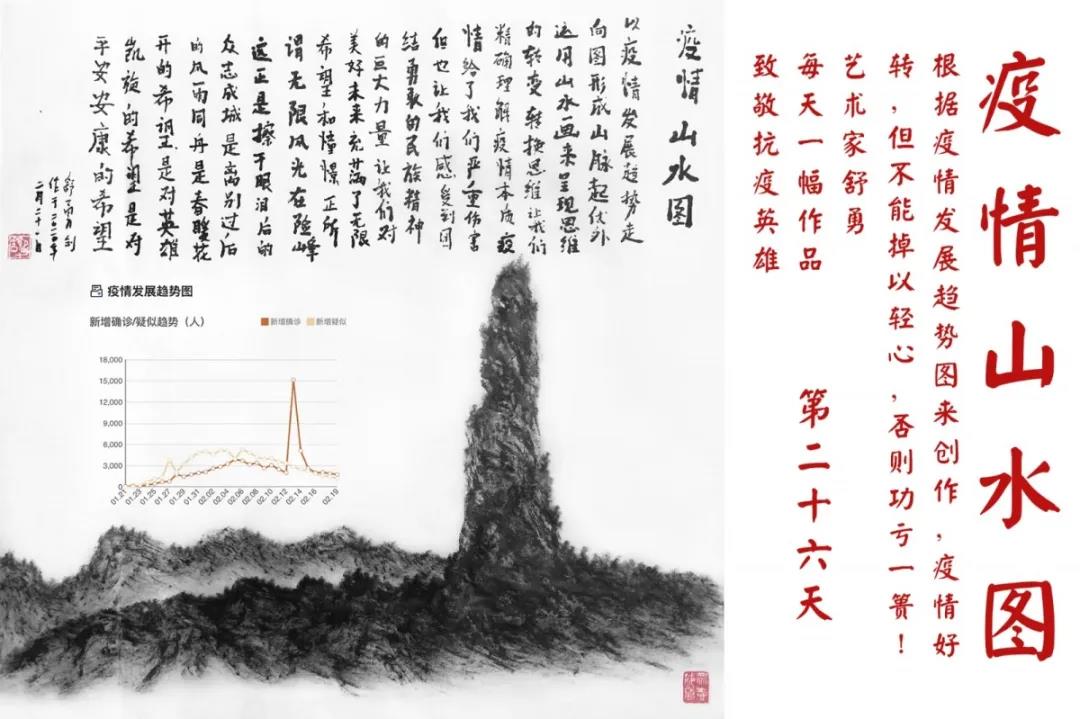 疫情山水图
根据疫情发展趋势图来创作，疫情好
转，但不能掉以轻心，否则功亏一篑！
艺术家舒勇
每天一幅作品 第二十六天
致敬抗疫英雄
疫情山水图
以疫情发展趋势走
向图形成山脉起伏外
这用山水画来呈现思维
的转变转换思维让我们
精确理解疫情本质疫
情给了我们严重伤害
但也让我们感受到团
结勇敢的民族精神
的巨大力量让我们对
美好未来充满了无限
希望和憧憬正所
谓无限风光在险峰
这正是擦干眼泪后的
众志成城是离别过后
的风雨同舟是春暖花
开的希望是对英雄
凯旋的希望是对
平安安康的希望
疫情发展趋势图
新增确诊/疑似趋势（人）
新增确诊 新增疑似
18,000
15,000
12,000
9,000
6,000
3,000
0
01.21 01.23 01.25 01.27 01.31 02.02 02.04 02.06 02.08 02.10 02.12 02.14 02.16 02.19